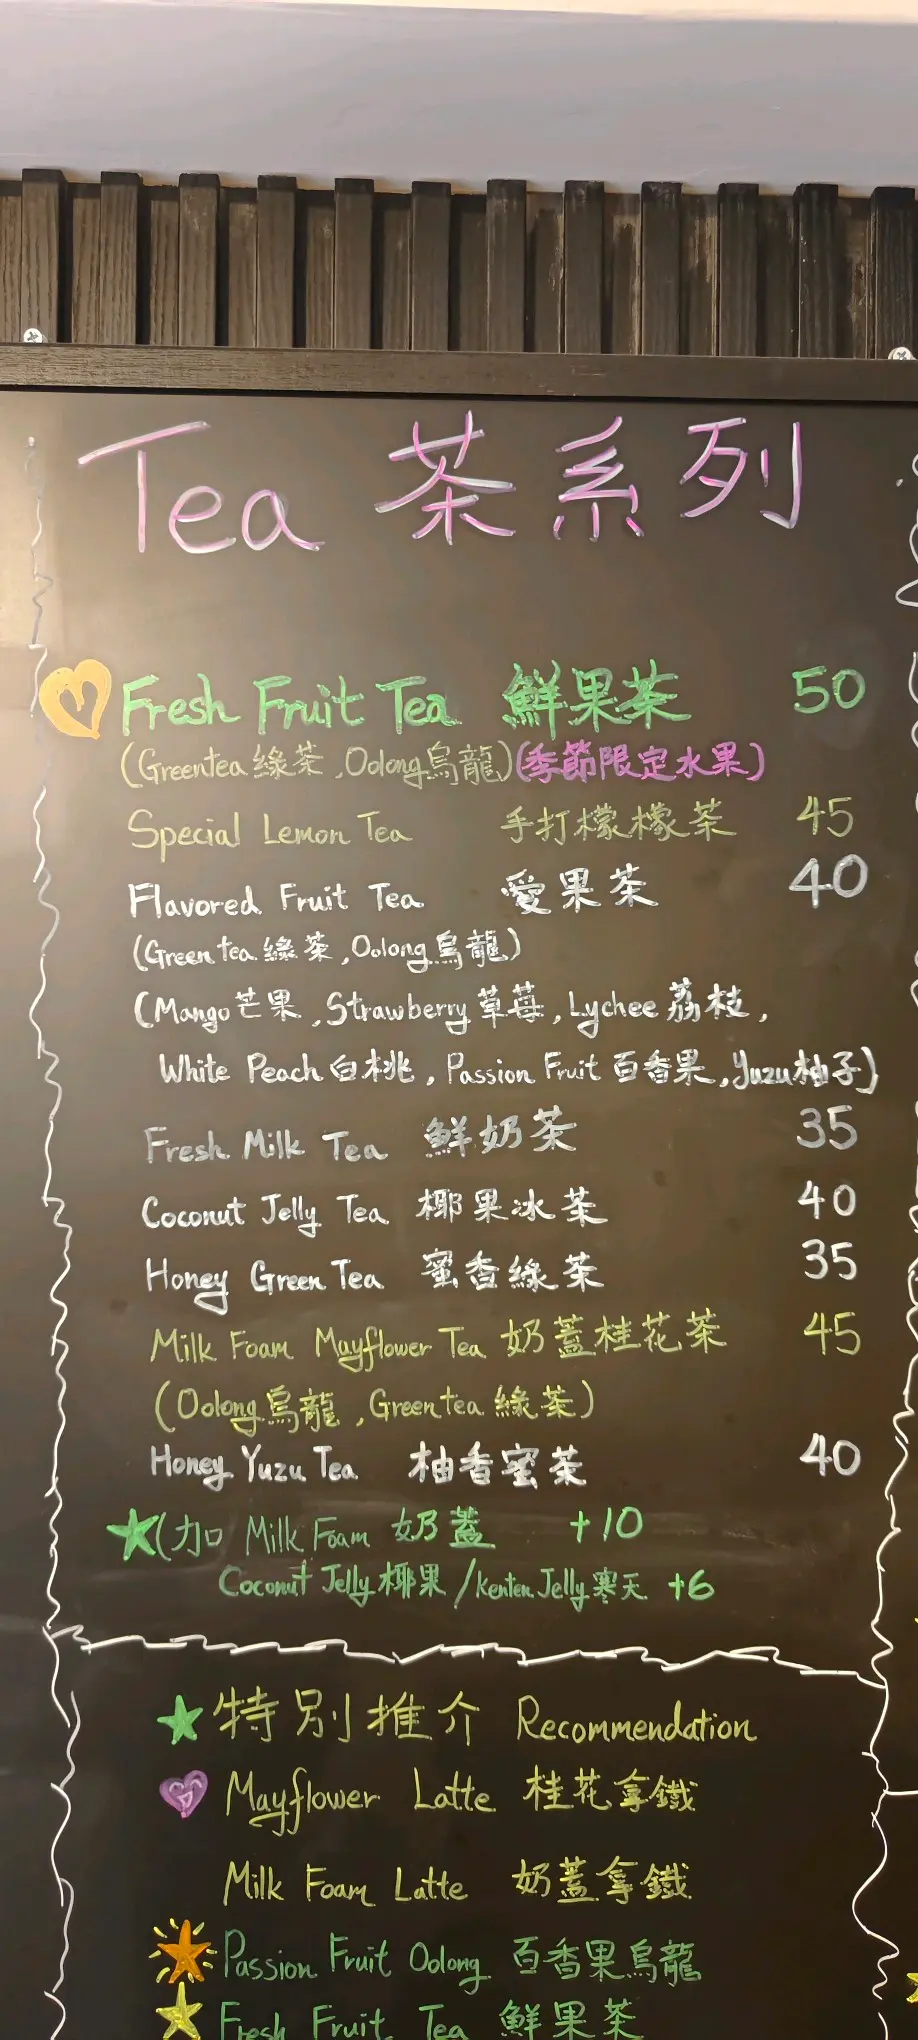 Tea 茶系列
Fresh Fruit Tea 鮮果茶 50
(Greentea 綠茶, Oolong烏龍)(季節限定水果)
Special Lemon Tea 手打檬檬茶 45
Flavored Fruit Tea 愛果茶 40
(Green tea 綠茶, Oolong烏龍)
(Mango芒果, Strawberry草莓, Lychee荔枝,
White Peach白桃, Passion Fruit 百香果, Yuzu柚子)
Fresh Milk Tea 鮮奶茶 35
Coconut Jelly Tea 椰果冰茶 40
Honey Green Tea 蜜香綠茶 35
Milk Foam Mayflower Tea 奶蓋桂花茶 45
(Oolong烏龍, Greentea 綠茶)
Honey Yuzu Tea 柚香蜜茶 40
(加 Milk Foam 奶蓋 +10
Coconut Jelly椰果/Kenten Jelly寒天 +6
特別推介 Recommendation
Mayflower Latte 桂花拿鐵
Milk Foam Latte 奶蓋拿鐵
Passion Fruit Oolong 百香果烏龍
Fresh Fruit Tea 鮮果茶